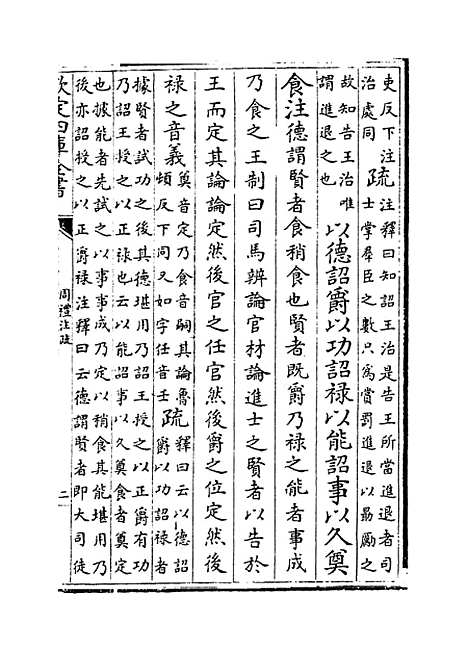 吏反下注
治處同
疏
注釋曰知詔王治是告王所當進退者司
士掌羣臣之數只為賞罰進退以勗勵之
故知告王治唯
謂進退之也
以德詔爵以功詔禄以能詔事以久奠
食注德謂賢者食稍食也賢者既爵乃禄之能者事成
乃食之王制曰司馬辨論官材論進士之賢者以告於
王而定其論論定然後官之任官然後爵之位定然後
禄之音義
奠音定乃食音嗣其論魯
頓反下同又如字任音壬
疏
釋曰云以德詔
爵以功詔禄者
據賢者試功之後其德堪用乃詔王授之以正爵有功
乃詔王授之以正禄也云以能詔事以久奠食者奠定
也據能者先試之以事事成乃定以稍食其能堪用乃
後亦詔授之以正爵禄注釋曰云德謂賢者即大司徒
欽定四庫全書
周禮注疏
二